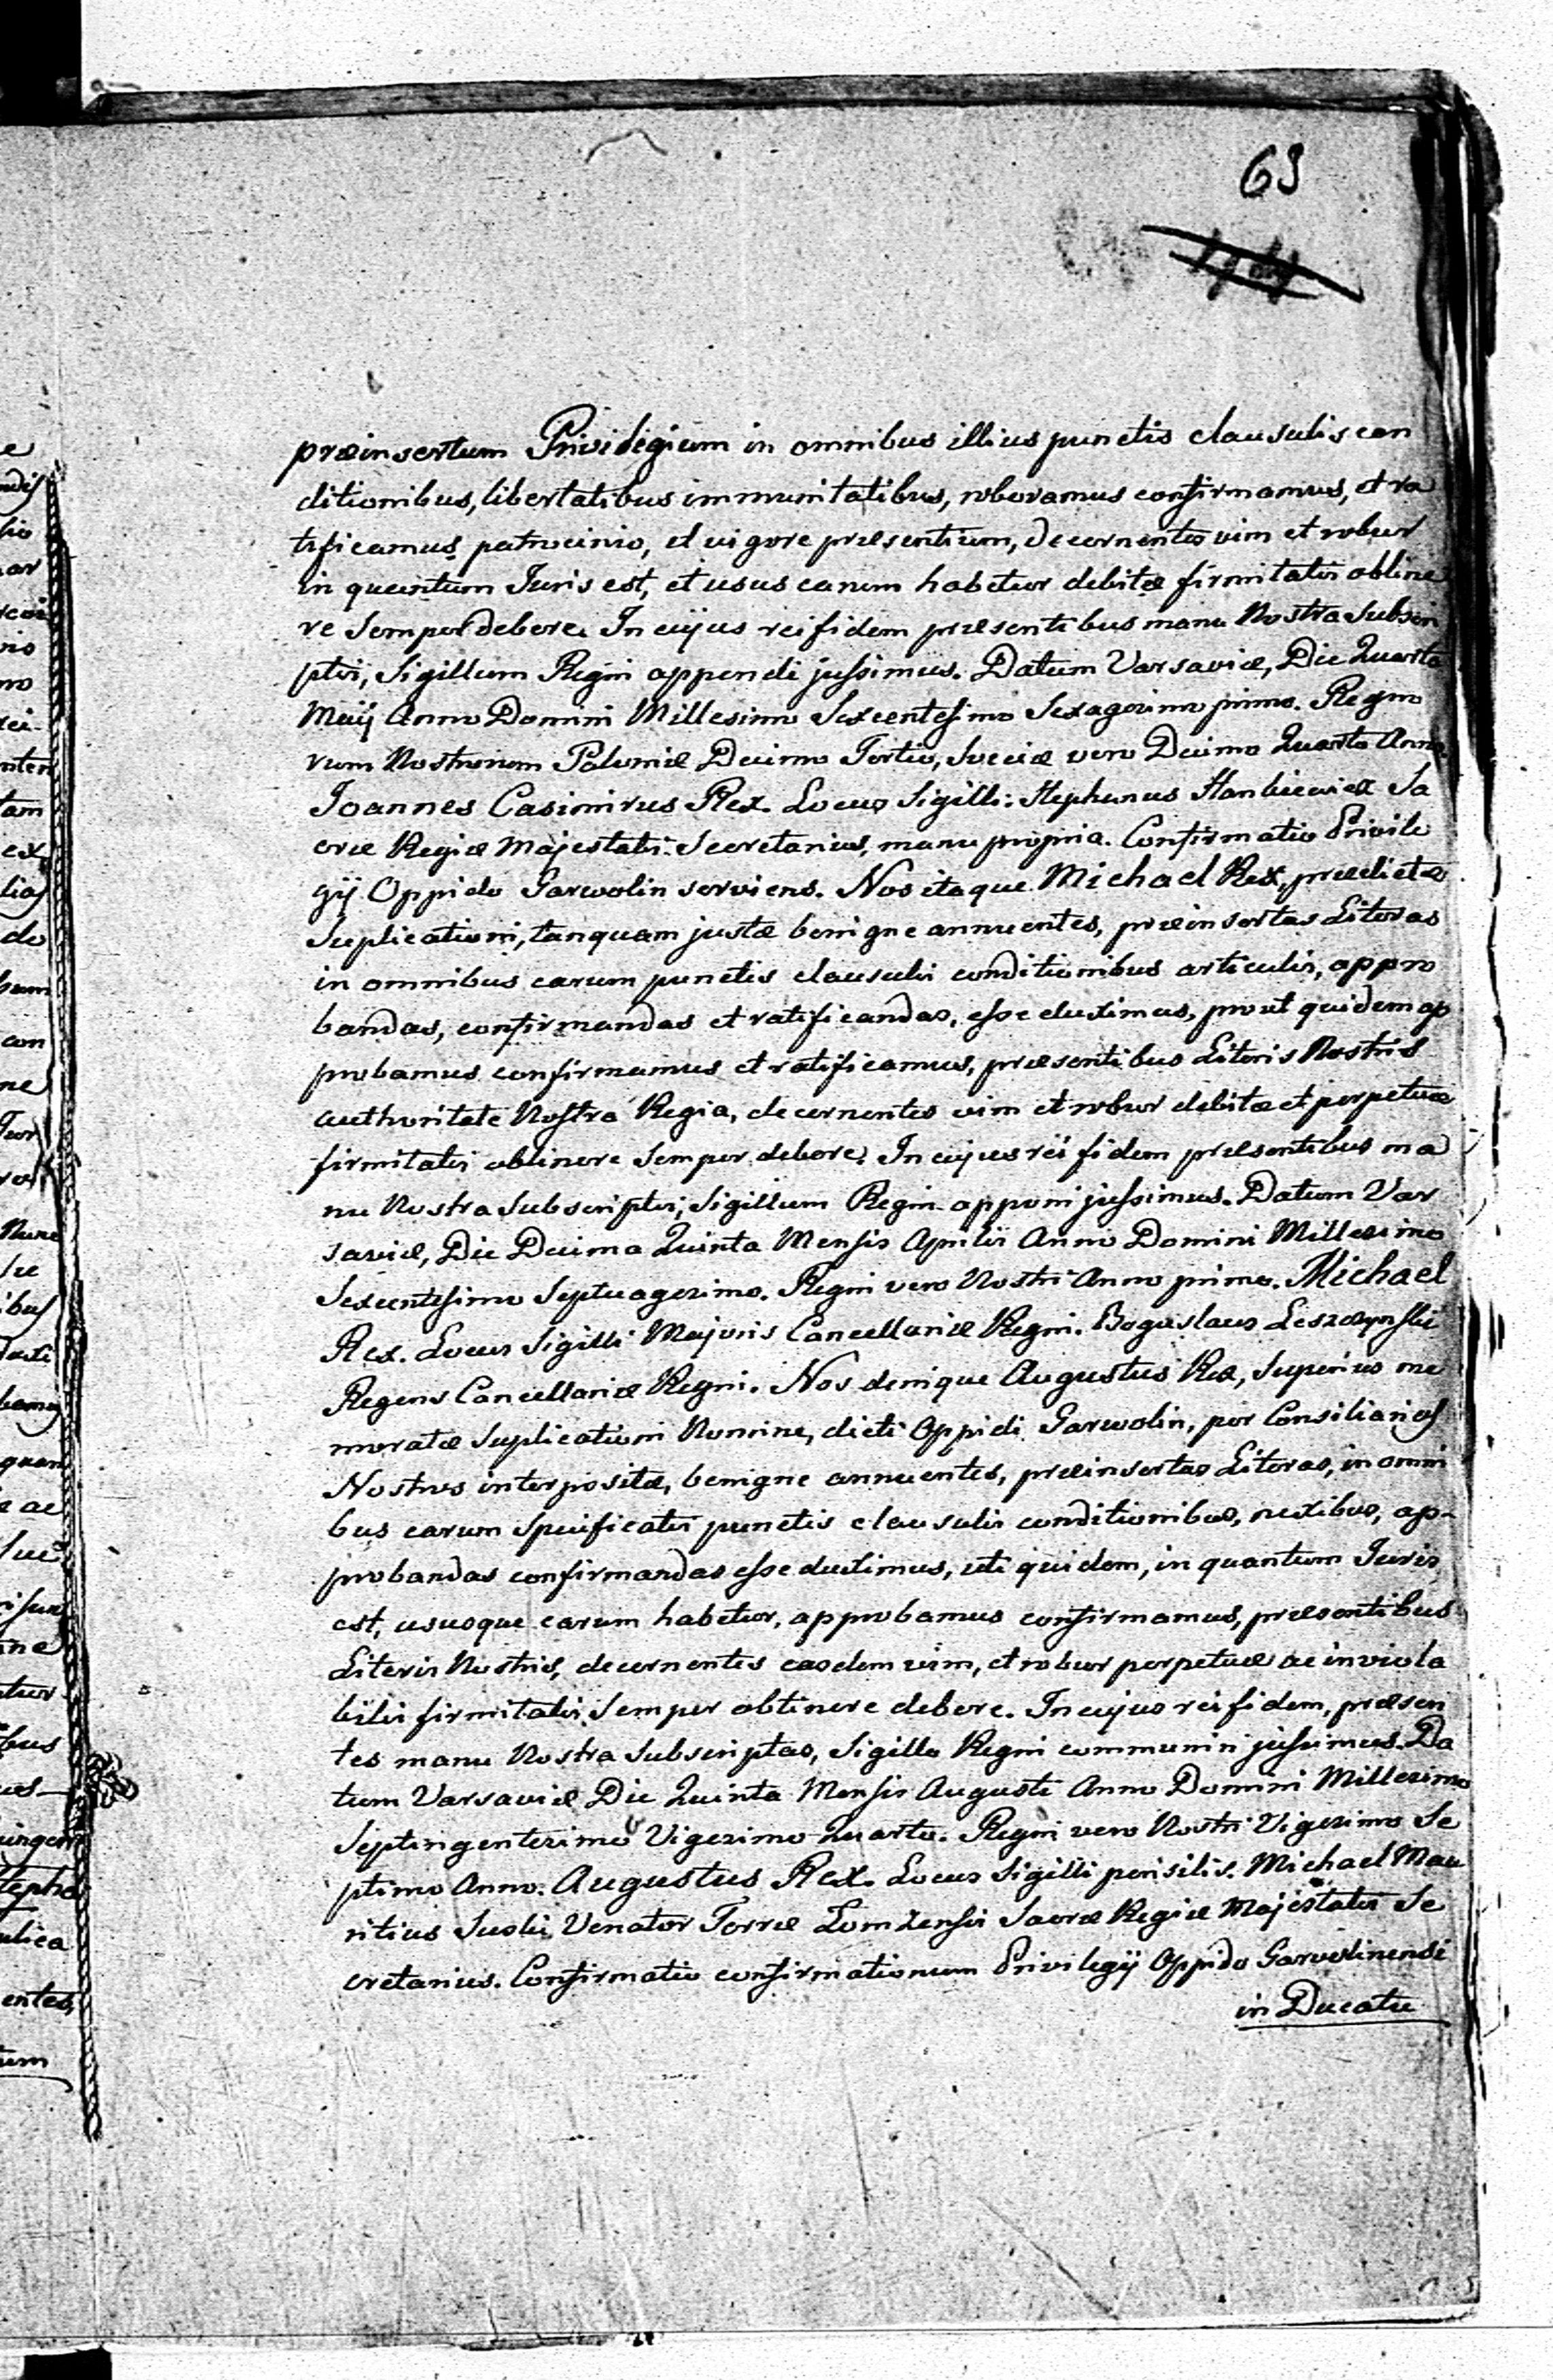 63
præinsertum Privilegium in omnibus illius punctis clausulis con
ditionibus, libertatibus immunitatibus, roboramus confirmamus, et ra
tificamus, patrocinio, et vigore præsentium, decernentes vim et robur
in quantum Juris est, et usus earum habetur debitæ firmitatis obtine
re semper debere. In cujus rei fidem præsentibus manu Nostra subscri
ptis, Sigillum Regni appendi jussimus. Datum Varsaviæ, Die Quarta
Maij Anno Domini Millesimo Sexcentesimo Sexagesimo primo. Regno
rum Nostrorum Poloniæ Decimo Tertio, Sveciæ vero Decimo Quarto Anno.
Joannes Casimirus Rex. Locus Sigilli: Stephanus Hankiewicz Sa
cræ Regiæ Majestatis Secretarius, manu propria. Confirmatio Privile
gij Oppido Garwolin serviens. Nos itaque Michael Rex, prædictæ
Suplicationi, tanquam justæ benigne annuentes, præinsertas Literas
in omnibus earum punctis clausulis conditionibus articulis, appro
bandas, confirmandas et ratificandas, esse duximus, prout quidem ap
probamus confirmamus et ratificamus, præsentibus Literis Nostris
authoritate Nostra Regia, decernentes vim et robur debitæ et perpetuæ
firmitatis obtinere semper debere. In cujus rei fidem præsentibus ma
nu Nostra subscriptis, Sigillum Regni apponi jussimus. Datum Var
saviæ, Die Decima Quinta Mensis Aprilis Anno Domini Millesimo
Sexcentesimo Septuagesimo. Regni vero Nostri Anno primo. Michael
Rex. Locus Sigilli Majoris Cancellariæ Regni. Boguslaus Leszczynski
Regens Cancellariæ Regni. Nos denique Augustus Rex, Superius me
moratæ Suplicationi Nomine, dicti Oppidi Garwolin, per Consiliarios
Nostros interpositæ, benigne annuentes, præinsertas Literas, in omni
bus earum specificatis punctis clausulis conditionibus, nexibus, ap-
probandas confirmandas esse duximus, uti quidem, in quantum Juris
est, ususque earum habetur, approbamus confirmamus, præsentibus
Literis Nostris, decernentes easdem vim, et robur perpetuæ ac inviola
bilis firmitatis semper obtinere debere. In cujus rei fidem, præsen
tes manu Nostra subscriptas, Sigillo Regni communiri jussimus. Da
tum Varsaviæ Die Quinta Mensis Augusti Anno Domini Millesimo
Septingentesimo Vigesimo Quarto. Regni vero Nostri Vigesimo Se
ptimo Anno. Augustus Rex. Locus Sigilli pensilis. Michael Mau
ritius Suski, Venator Terræ Lomzensis Sacræ Regiæ Majestatis Se
cretarius. Confirmatio confirmationum Privilegij Oppido Garwolinensi
in Ducatu